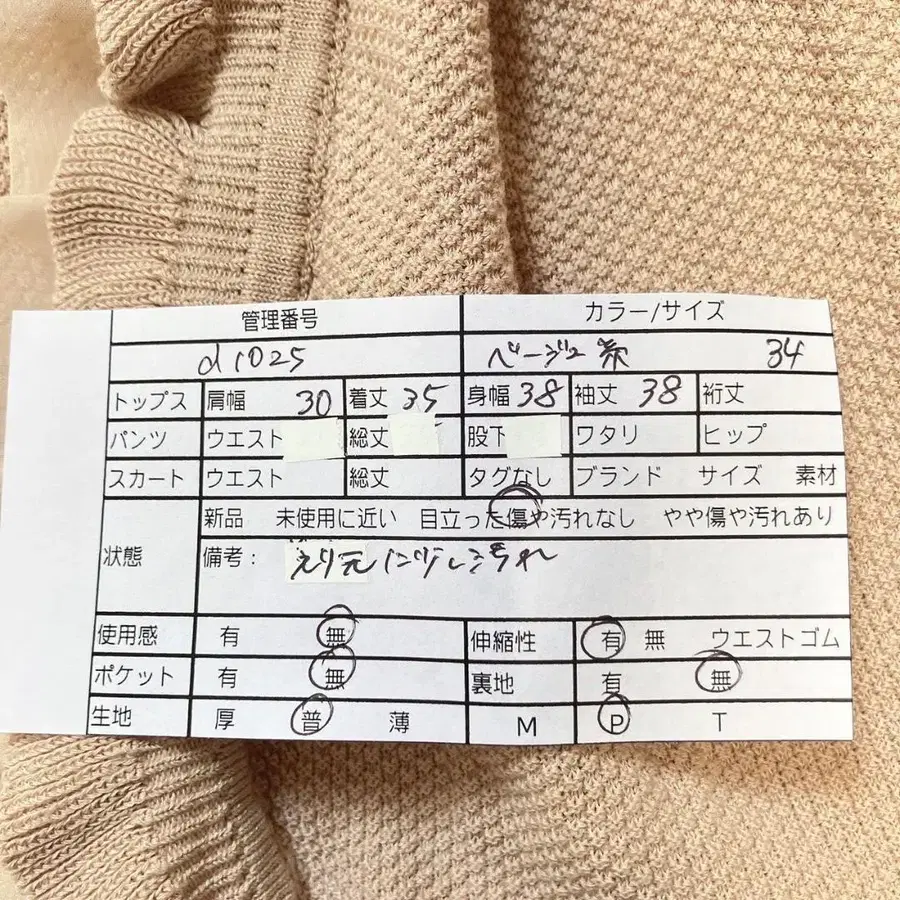 管理番号 カラー/サイズ
d1025 ベージュ系 34
トップス 肩幅 30 着丈 35 身幅 38 袖丈 38 裄丈
パンツ ウエスト 総丈 股下 ワタリ ヒップ
スカート ウエスト 総丈 タグなし ブランド サイズ 素材
状態 新品 未使用に近い 目立った傷や汚れなし やや傷や汚れあり
備考： えり元に 汚れ
使用感 有 無 伸縮性 有 無 ウエストゴム
ポケット 有 無 裏地 有 無
生地 厚 普 薄 M P T